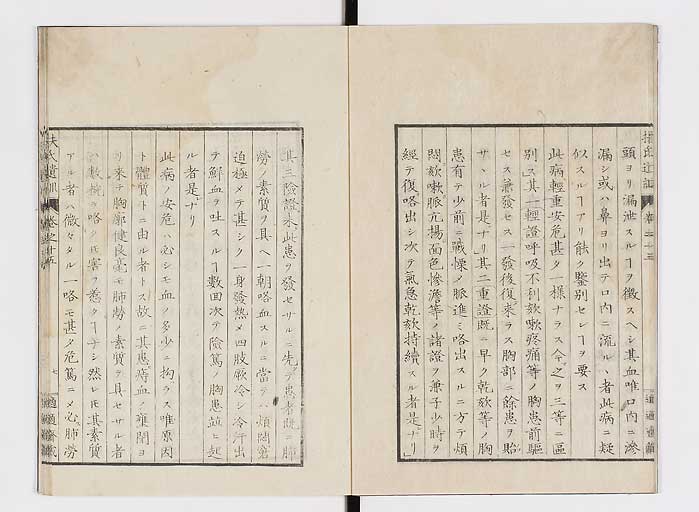 頭ヨリ漏泄スルヿヲ徴スヘシ其血唯口内ニ滲
漏シ或ハ鼻ヨリ出テ口内ニ流ルヽ者此病ニ疑
似スルヿアリ能ク鑒別セレヿヲ要ス
此病輕重安危甚タ一様ナラス今之ヲ三等ニ區
別ス其一輕證呼吸不利欬嗽疼痛等ノ胸患前驅
セス兼發セス一發後復來ラス胸部ニ餘患ヲ貽
サヽル者是ナリ其二重證既ニ早ク乾欬等ノ胸
患有テ少前ニ戰慄ノ脈進ミ咯出スルニ方テ煩
悶欬嗽脈亢揚面色慘澹等ノ諸證ヲ兼子少時ヲ
經テ復咯出シ次テ氣急乾欬持續スル者是ナリ
其三險證未此患ヲ發セサルニ先テ患者既ニ肺
勞ノ素質ヲ具ヘ一朝咯血スルニ當テハ煩悶窘
迫極メテ甚シク一身發熱メ四肢厥冷シ冷汗出
テ鮮血ヲ吐スルヿ數回次テ險篤ノ胸患竝ヒ起
ル者是ナリ
此病ノ安危ハ必シモ血ノ多少ニ拘ラス唯原因
ト體質トニ由ル者トス故ニ其患痔血ノ壅閉ヨ
リ來テ胸廓健良毫モ肺勞ノ素質ヲ具セサル者
ハ數椀ヲ咯クモ害ヲ惹クヿナシ然レモ其素質
アル者ハ微々タル一咯モ甚タ危篤ニメ必肺勞
扶氏遺訓
卷之十五
七